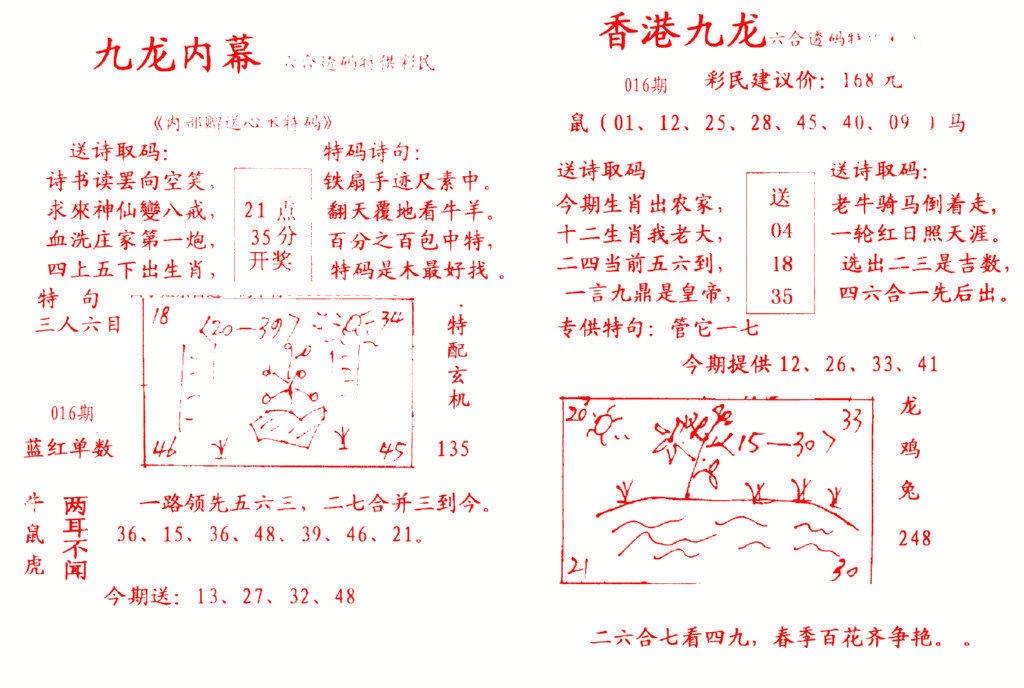 九龙内幕
六合透码特供彩民
《内部赠送心水特码》
送诗取码：
诗书读罢向空笑，
求來神仙變八戒，
血洗庄家第一炮，
四上五下出生肖，
21点
35分
开奖
特码诗句：
铁扇手迹尺素中。
翻天覆地看牛羊。
百分之百包中特，
特码是木最好找。
特句
三人六目
016期
蓝红单数
18
〈20—39〉
34
46
45
特配玄机
135
牛
鼠
虎
两耳不闻
一路领先五六三，二七合并三到今。
36、15、36、48、39、46、21。
今期送：13、27、32、48
香港九龙
六合透码特
016期
彩民建议价：168元
鼠（01、12、25、28、45、40、09）马
送诗取码
今期生肖出农家，
十二生肖我老大，
二四当前五六到，
一言九鼎是皇帝，
送
04
18
35
送诗取码：
老牛骑马倒着走，
一轮红日照天涯。
选出二三是吉数，
四六合一先后出。
专供特句：管它一七
今期提供12、26、33、41
20
33
〈15—30〉
21
30
龙
鸡
兔
248
二六合七看四九，春季百花齐争艳。。